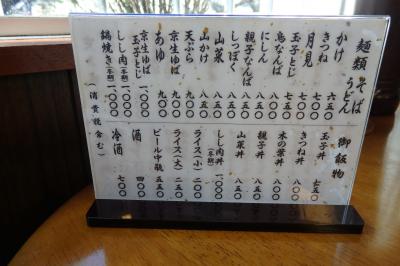 麺類 そば うどん
かけ 六五〇
きつね 七五〇
月見 七五〇
玉子とじ
鳥なんば 八五〇
親子なんば
にしん
しっぽく 八五〇
山菜 八五〇
山かけ 八五〇
天ぷら 九〇〇
京生ゆば 九〇〇
あゆ 九〇〇
京生ゆば
玉子とじ 一、〇〇〇
しし肉(冬期) 一、〇〇〇
鍋焼き(冬期) 一、〇〇〇
(消費税含む)
御飯物
玉子丼 七五〇
きつね丼
木の葉丼 八五〇
親子丼 八五〇
山菜丼 八五〇
しし肉丼(冬期) 一、〇〇〇
ライス(小) 二〇〇
ライス(大) 二五〇
ビール中瓶 五五〇
酒 四〇〇
冷酒 七〇〇